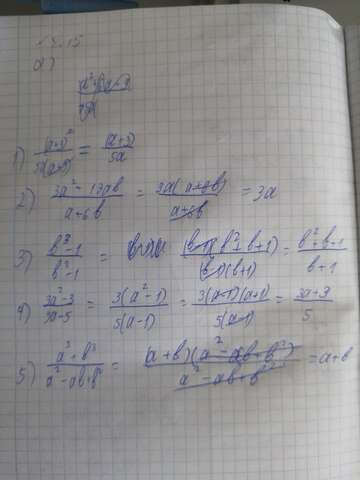 a)
1) (a+3)² / 5a(a+3) = (a+3) / 5a
2) 3a² - 18ab / a+6b = 3a(a+6b) / a+6b = 3a
3) b³-1 / b²-1 = (b-1)(b²+b+1) / (b-1)(b+1) = b²+b+1 / b+1
4) 3a²-3 / 5a-5 = 3(a²-1) / 5(a-1) = 3(a-1)(a+1) / 5(a-1) = 3a+3 / 5
5) a³+b³ / a²-ab+b² = (a+b)(a²-ab+b²) / a²-ab+b² = a+b